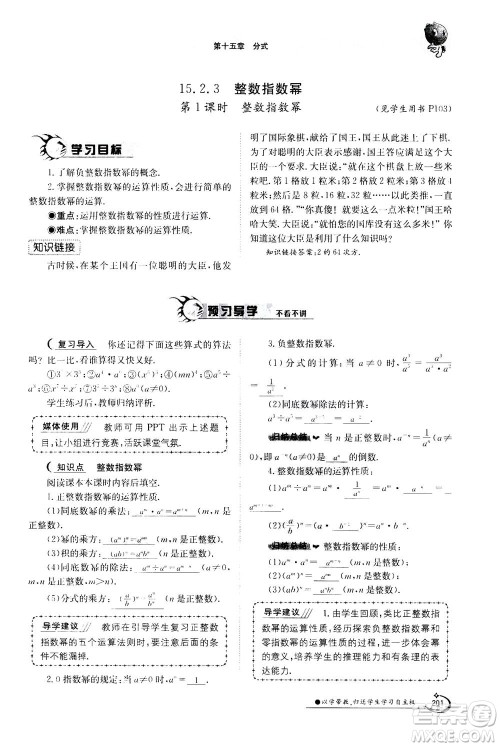 第十五章 分式
15.2.3 整数指数幂
第1课时 整数指数幂
(见学生用书P103)
学习目标
1.了解负整数指数幂的概念.
2.掌握整数指数幂的运算性质,会进行简单的
整数指数幂的运算.
●重点:运用整数指数幂的运算性质进行计算.
●难点:掌握整数指数幂的运算性质.
知识链接
古时候,在某个王国有一位聪明的大臣,他发
明了国际象棋,献给了国王,国王从此迷上了下棋.
为了对聪明的大臣表示感谢,国王答应满足这个大
臣的一个要求.大臣说:“就在这个棋盘上放一些
米粒吧!第1格放1粒米,第2格放2粒米,第3格
放4粒米,然后是8粒、16粒、32粒……一直到第
64格.”“你真傻!就要这么一点米粒?”国王哈哈
大笑.大臣说:“就怕您的国库里没有这么多米!”你
知道这位大臣利用了什么知识吗?
知识链接答案:2的64次方.
预习导学 不看不讲
复习导入 你还记得下面这些算式的算法
吗?比一比,看谁做得又快又好.
学生练习后,教师归纳评析.
媒体使用 教师可用PPT示出上述题
目,让小组进行竞赛,活跃课堂气氛.
知识点 整数指数幂
阅读课本本课时内容后填空.
1.正整数指数幂的运算性质.
(1)同底数幂的乘法:aᵐ·aⁿ=aᵐ⁺ⁿ(m,n是正
整数).
(2)幂的乘方:(aᵐ)ⁿ=aᵐⁿ(m,n是正整数).
(3)积的乘方:(ab)ⁿ=aⁿbⁿ(n是正整数).
(4)同底数幂的除法:aᵐ÷aⁿ=aᵐ⁻ⁿ(a≠0,
m,n是正整数,m>n).
(5)分式的乘方:(a/b)ⁿ=aⁿ/bⁿ(n是正整数).
导学建议 教师在引导学生复习正整数
指数幂的五个运算法则时,要强调成立的条
件不能漏掉.
2.0指数幂的规定:当a≠0时,a⁰=1.
3.负整数指数幂.
(1)分式的约分:当a≠0时,a³/a⁵=a³/(a³·a²)
=1/a².
(2)同底数幂除法的计算:当a≠0时,
a³÷a⁵=a³⁻⁵=a⁻².
归纳总结 当n是正整数时,a⁻ⁿ=1/aⁿ(a≠
0),即a⁻ⁿ(a≠0)是aⁿ的倒数.
4.整数指数幂的运算性质.
归纳总结 整数指数幂的性质:
(1)aᵐ·aⁿ=aᵐ⁺ⁿ(m,n是整数);
(2)(aᵐ)ⁿ=aᵐⁿ(m,n是整数);
(3)(ab)ⁿ=aⁿbⁿ(n是整数).
导学建议 1.由学生回顾,类比正整数指
数幂的运算性质,探索负整数指数幂和
零指数幂的运算性质,进而得出整数指数
幂的运算性质,体现从特殊到一般的数学
思想,培养学生的推理能力和计算能力.
2.有条理地书写每一步的运算过程.
●以学带教,归还学生学习自主权
201